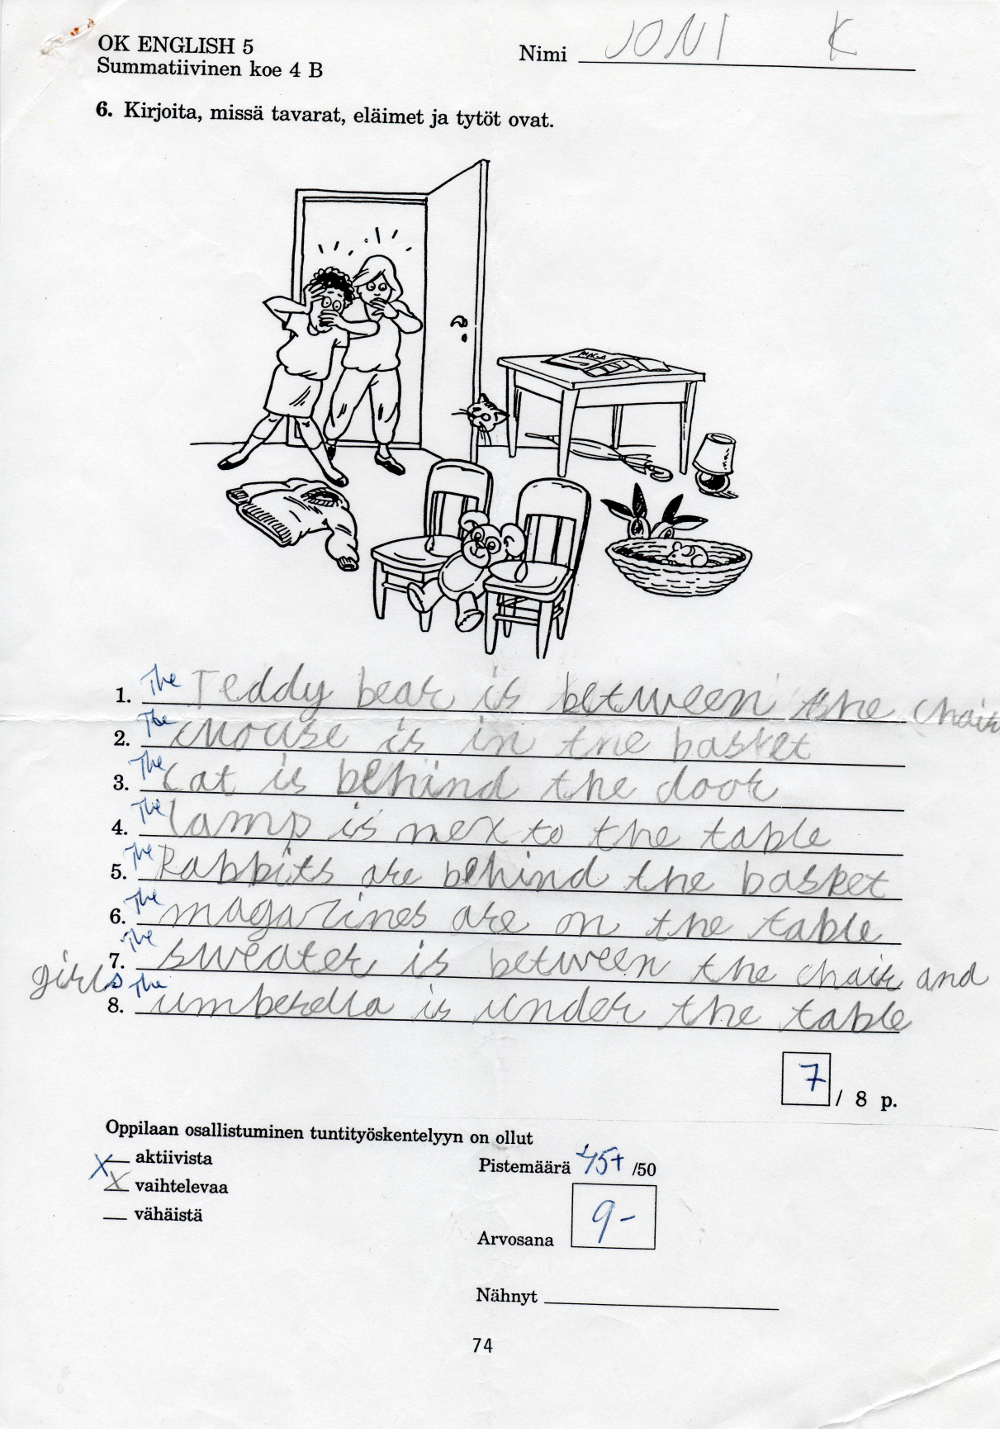 OK ENGLISH 5
Summatiivinen koe 4 B
Nimi JONI K
6. Kirjoita, missä tavarat, eläimet ja tytöt ovat.
1. The Teddy bear is between the chair
2. The mouse is in the basket
3. The Cat is behind the door
4. The lamp is nex to the table
5. The Rabbits are behind the basket
6. The magazines are on the table
7. The sweater is between the chair and
girls
8. The umberella is under the table
7 / 8 p.
Oppilaan osallistuminen tuntityöskentelyyn on ollut
X aktiivista
X vaihtelevaa
vähäistä
Pistemäärä 45+ /50
Arvosana 9-
Nähnyt
74